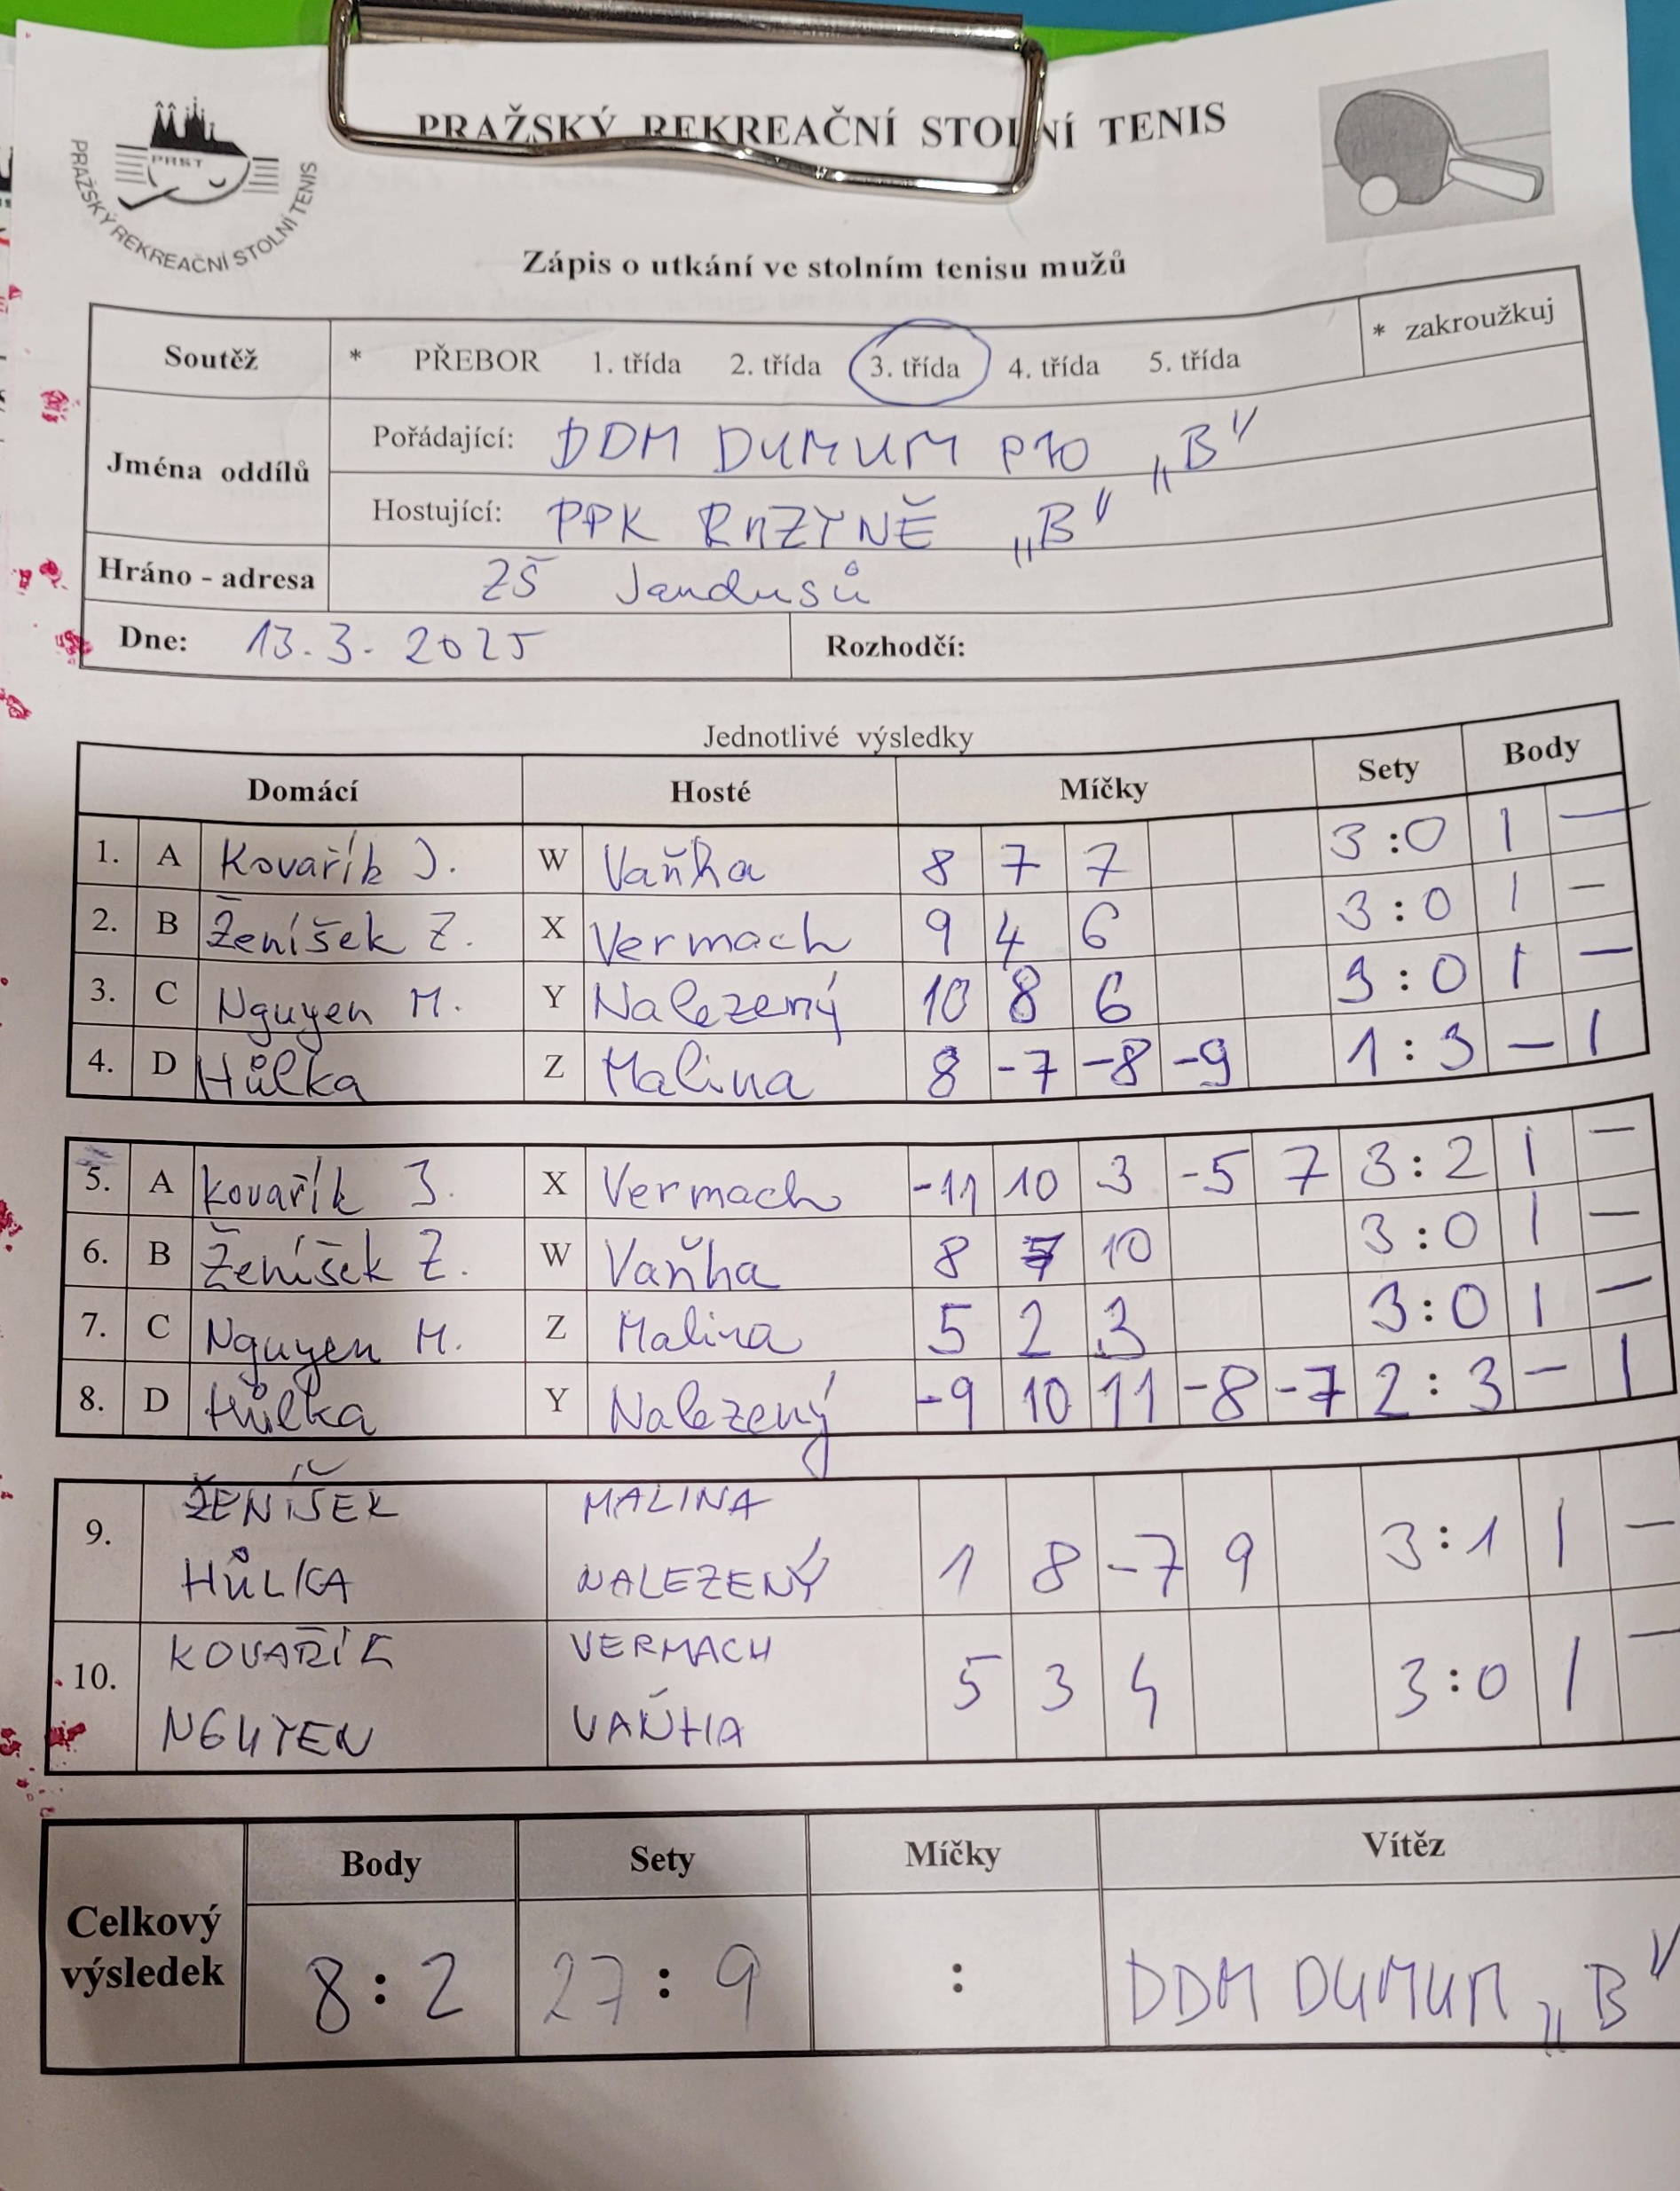 PRAŽSKÝ REKREAČNÍ STOLNÍ TENIS
PRST
PRAŽSKÝ REKREAČNÍ STOLNÍ TENIS
Zápis o utkání ve stolním tenisu mužů
Soutěž * PŘEBOR 1. třída 2. třída 3. třída 4. třída 5. třída * zakroužkuj
Jména oddílů
Pořádající: DDM DUMUM P10 „B"
Hostující: PPK RUZYNĚ „B"
Hráno - adresa ZŠ Jandusů
Dne: 13.3. 2025 Rozhodčí:
Jednotlivé výsledky
Domácí Hosté Míčky Sety Body
1. A Kovařík J. W Vaňha 8 7 7 3:0 1 —
2. B Ženíšek Z. X Vermach 9 4 6 3:0 1 —
3. C Nguyen M. Y Nalezený 10 8 6 3:0 1 —
4. D Hůlka Z Malina 8 -7 -8 -9 1:3 — 1
5. A Kovařík J. X Vermach -11 10 3 -5 7 3:2 1 —
6. B Ženíšek Z. W Vaňha 8 10 3:0 1 —
7. C Nguyen M. Z Malina 5 2 3 3:0 1 —
8. D Hůlka Y Nalezený -9 10 11 -8 -7 2:3 — 1
9. ŽENÍŠEK MALINA
HŮLKA NALEZENÝ 1 8 -7 9 3:1 1 —
10. KOVAŘÍK VERMACH
NGUYEN VAŇHA 5 3 4 3:0 1 —
Celkový výsledek
Body Sety Míčky Vítěz
8:2 27:9 : DDM DUMUM „B"